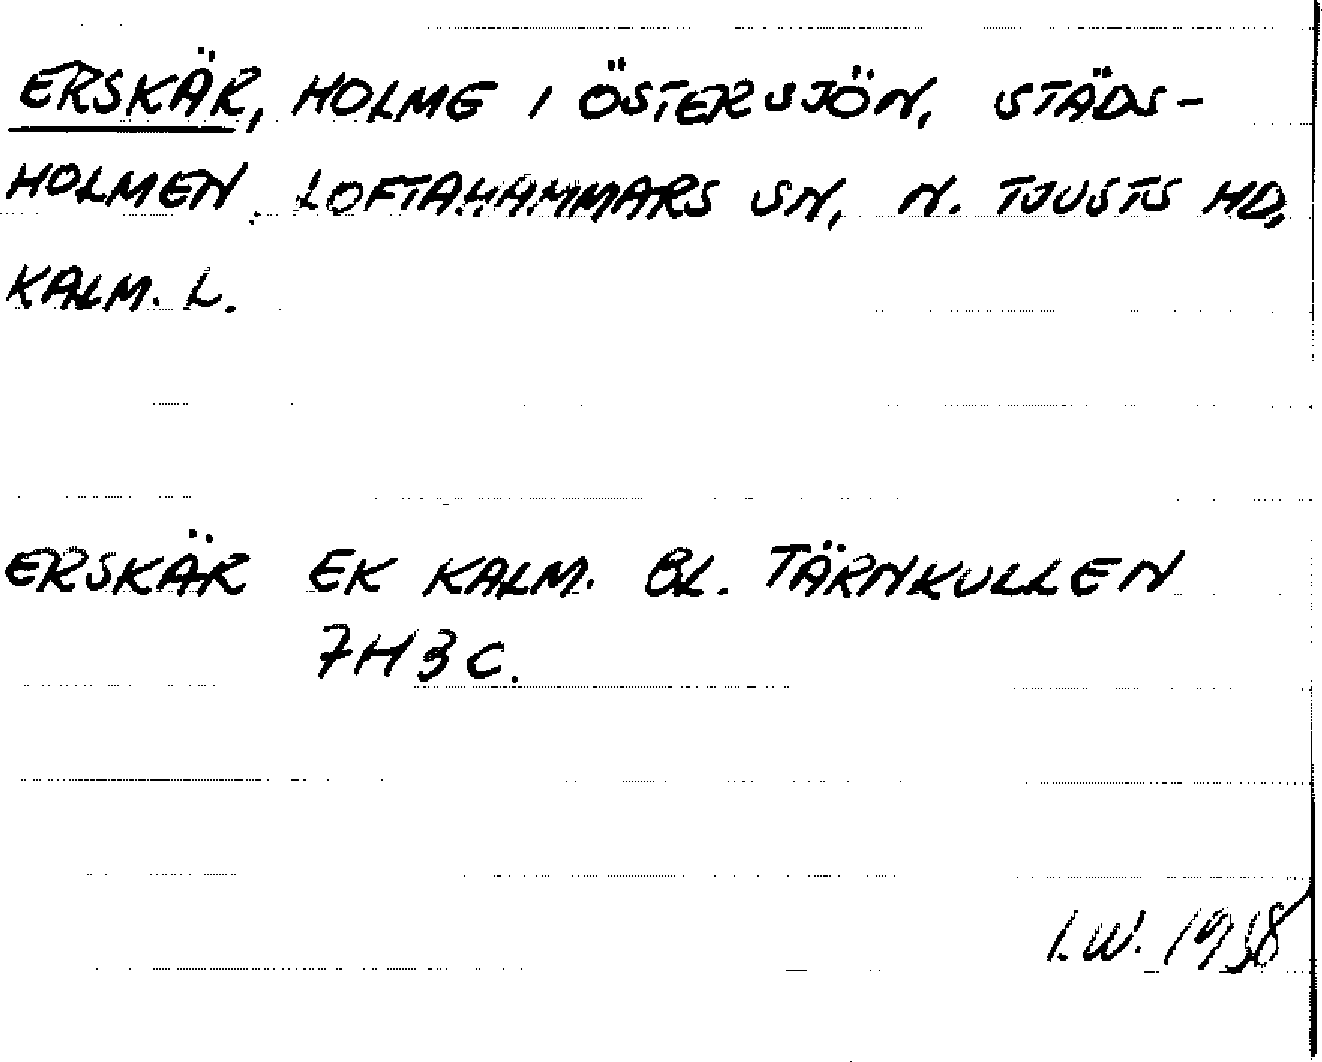 ERSKÄR, HOLME I ÖSTERSJÖN, STÄDS-
HOLMEN, LOFTAHAMMARS SN, N. TJUSTS HD,
KALM. L.
ERSKÄR EK KALM. BL. TÄRNKULLEN
7H3C.
I.W. 1958